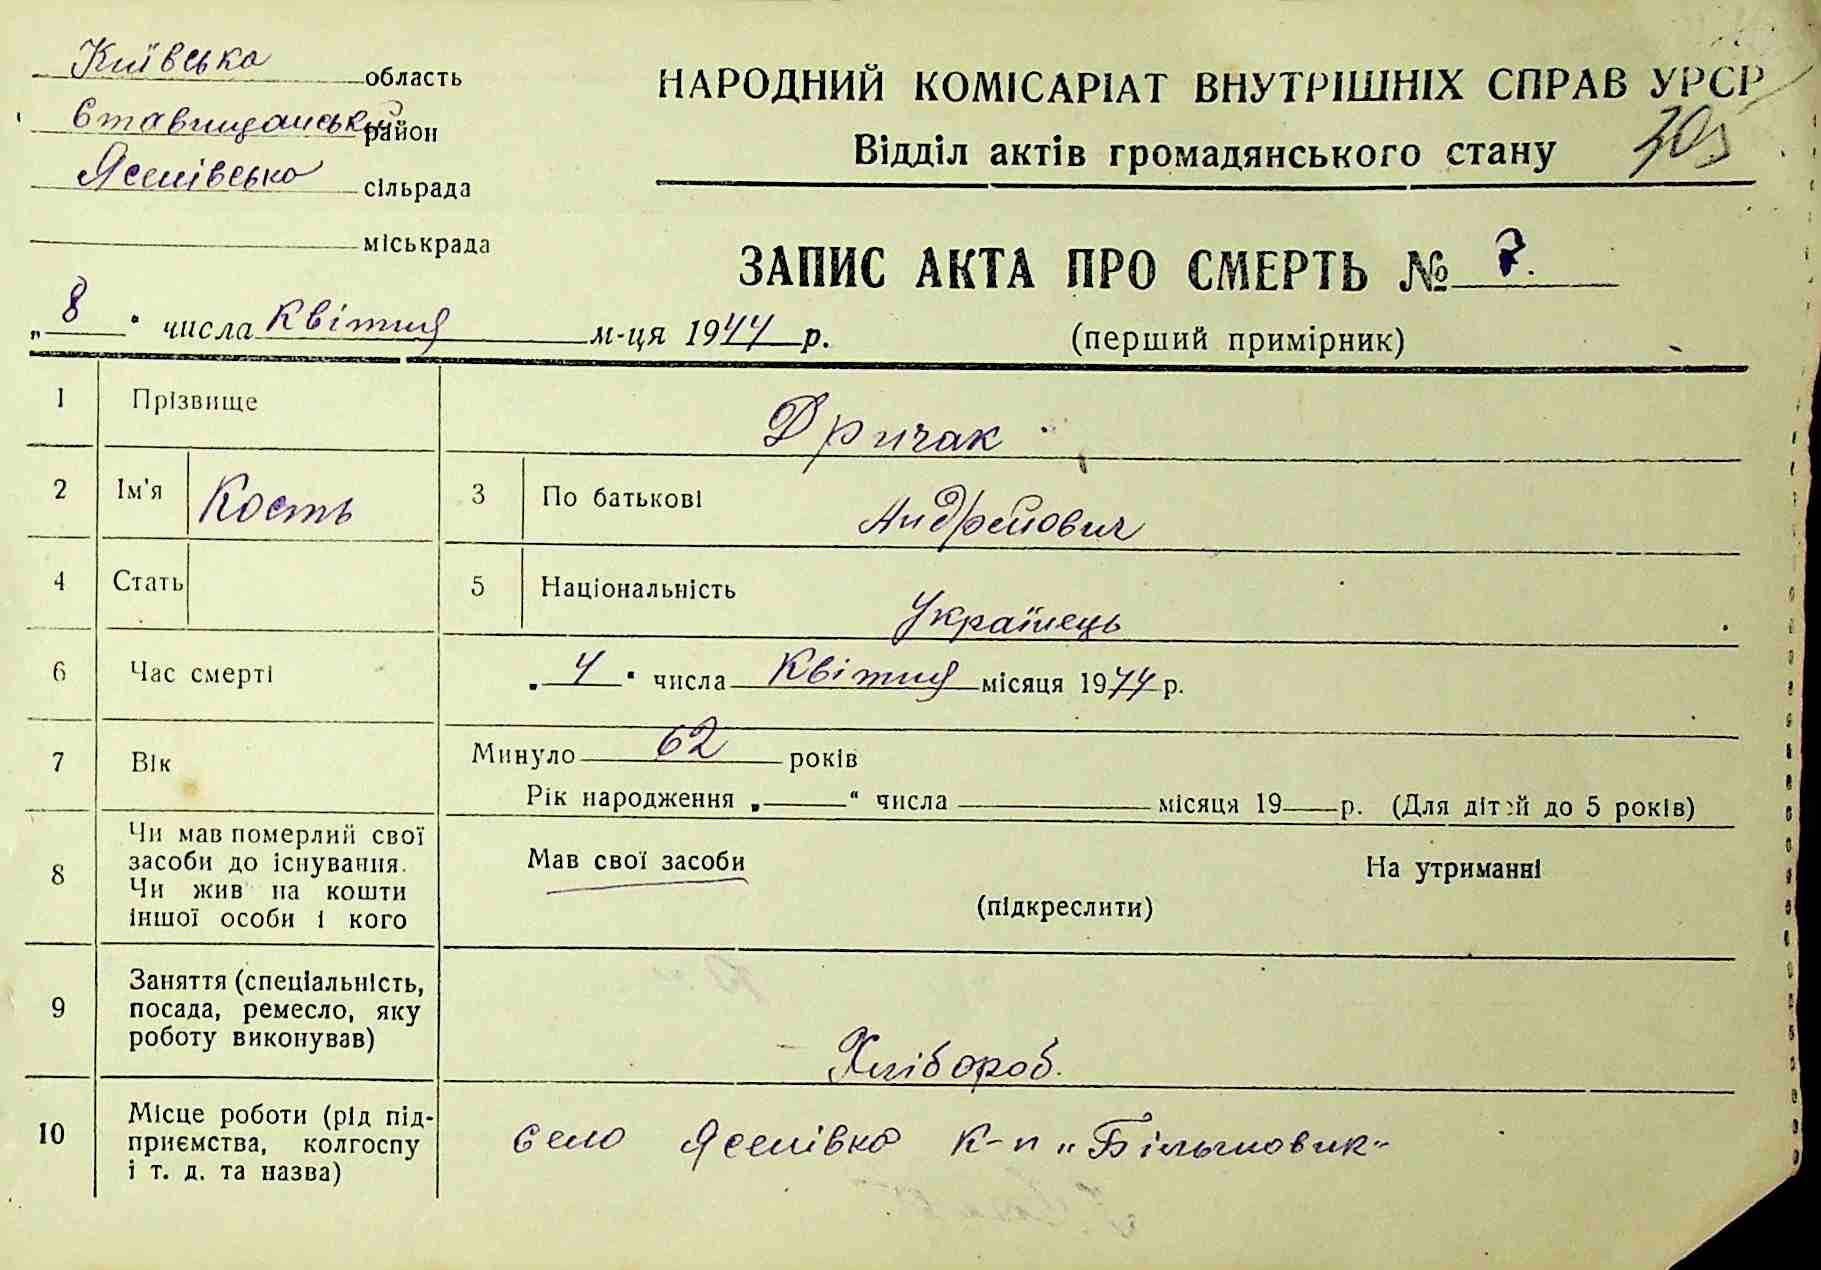 Київська область
Ставищанський район
Яселівська сільрада
міськрада
НАРОДНИЙ КОМІСАРІАТ ВНУТРІШНІХ СПРАВ УРСР
Відділ актів громадянського стану
305
ЗАПИС АКТА ПРО СМЕРТЬ № 7.
(перший примірник)
„8“ числа Квітня м-ця 1944 р.
1 Прізвище Дричак
2 Ім'я Кость 3 По батькові Андрейович
4 Стать 5 Національність Українець
6 Час смерті „4“ числа Квітня місяця 1944 р.
7 Вік Минуло 62 років
Рік народження „ “ числа місяця 19 р. (Для дітей до 5 років)
8 Чи мав померлий свої засоби до існування. Чи жив на кошти іншої особи і кого Мав свої засоби На утриманні
(підкреслити)
9 Заняття (спеціальність, посада, ремесло, яку роботу виконував) Хлібороб.
10 Місце роботи (рід підприємства, колгоспу і т. д. та назва) Село Яселівка к-п „Більшовик“